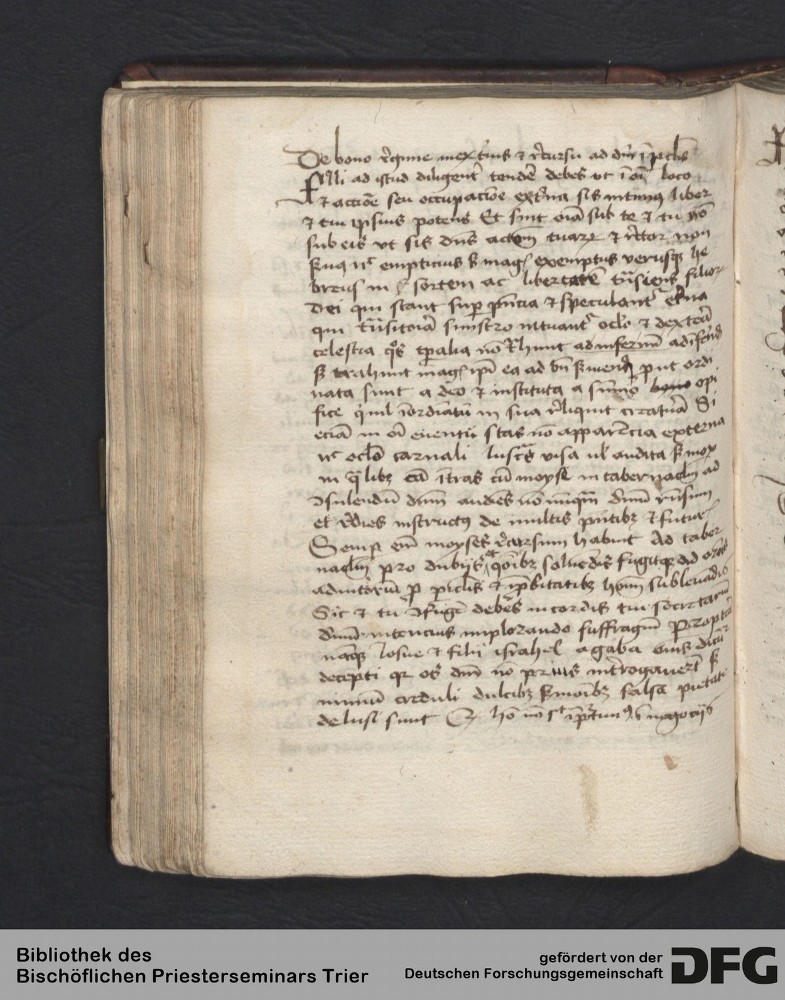 De bono regimine in externis et recursu ad deum in periculis
Fili ad istud diligenter tendere debes ut in omni loco
et accione seu occupacione externa sis intimus liber
et tui ipsius potens Et sint omnia sub te et tu non
sub eis ut sis dominus actionum tuarum et rector non
servus nec empticius sed magis exemptus verusque he
breus in sortem ac libertatem transiens filiorum
dei qui stant super presencia et speculantur eterna
qui transitoria sinistro intuentur oculo et dextro
celestia quos temporalia non trahunt ad inherendum
sed trahunt magis ipsi ea ad bene serviendum prout ordi
nata sunt a deo et instituta a summo opi
fice qui nil inordinatum in sua reliquit creatura Si
eciam in omni eventu stas non in apparencia externa
nec oculo carnali lustras visa vel audita sed mox
in qualibet causa intras cum moyse in tabernaculum ad
consulendum dominum audies nonnunquam divinum responsum
et redies instructus de multis presentibus et futuris
Semper enim moyses recursum habuit Ad taber
naculum pro dubiis et questionibus solvendis fugitque ad oracionis
adiutorium pro periculis et improbitatibus hominum sublevandis
Sic et tu confugere debes in cordis tui secretarium
divinum intencius implorando suffragium Propterea
namque Iosue et filii israhel a gabaonitis dicuntur
decepti quia os domini non prius interrogaverunt sed
nimium creduli dulcibus sermonibus falsa pietate
delusi sunt
Bibliothek des
Bischöflichen Priesterseminars Trier
gefördert von der
Deutschen Forschungsgemeinschaft
DFG